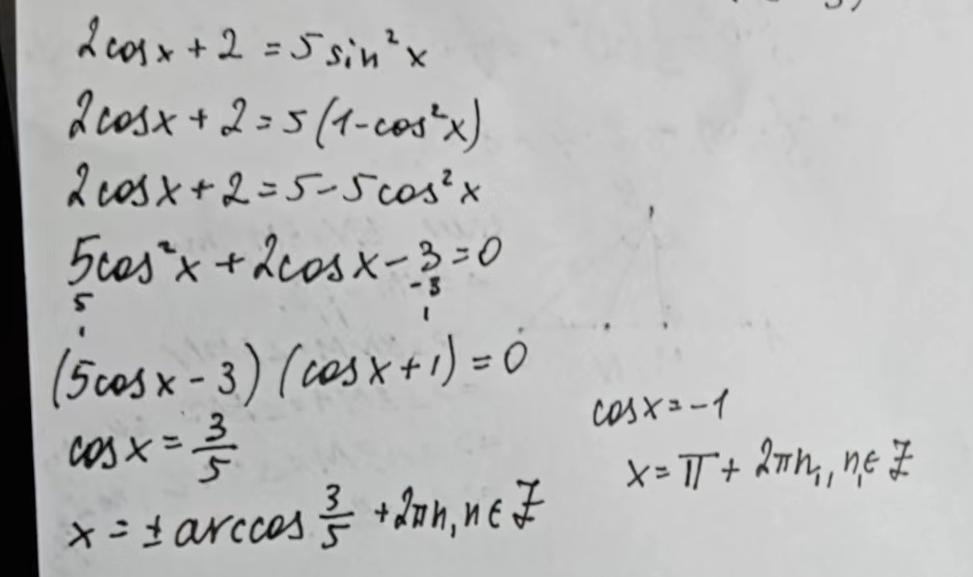 2cosx + 2 = 5 sin²x
2cosx + 2 = 5(1-cos²x)
2cosx + 2 = 5-5cos²x
5cos²x + 2cosx - 3 = 0
5 -3
1 1
(5cosx - 3)(cosx + 1) = 0
cosx = 3/5
x = ± arccos 3/5 + 2πn, n ∈ Z
cosx = -1
x = π + 2πn₁, n₁ ∈ Z